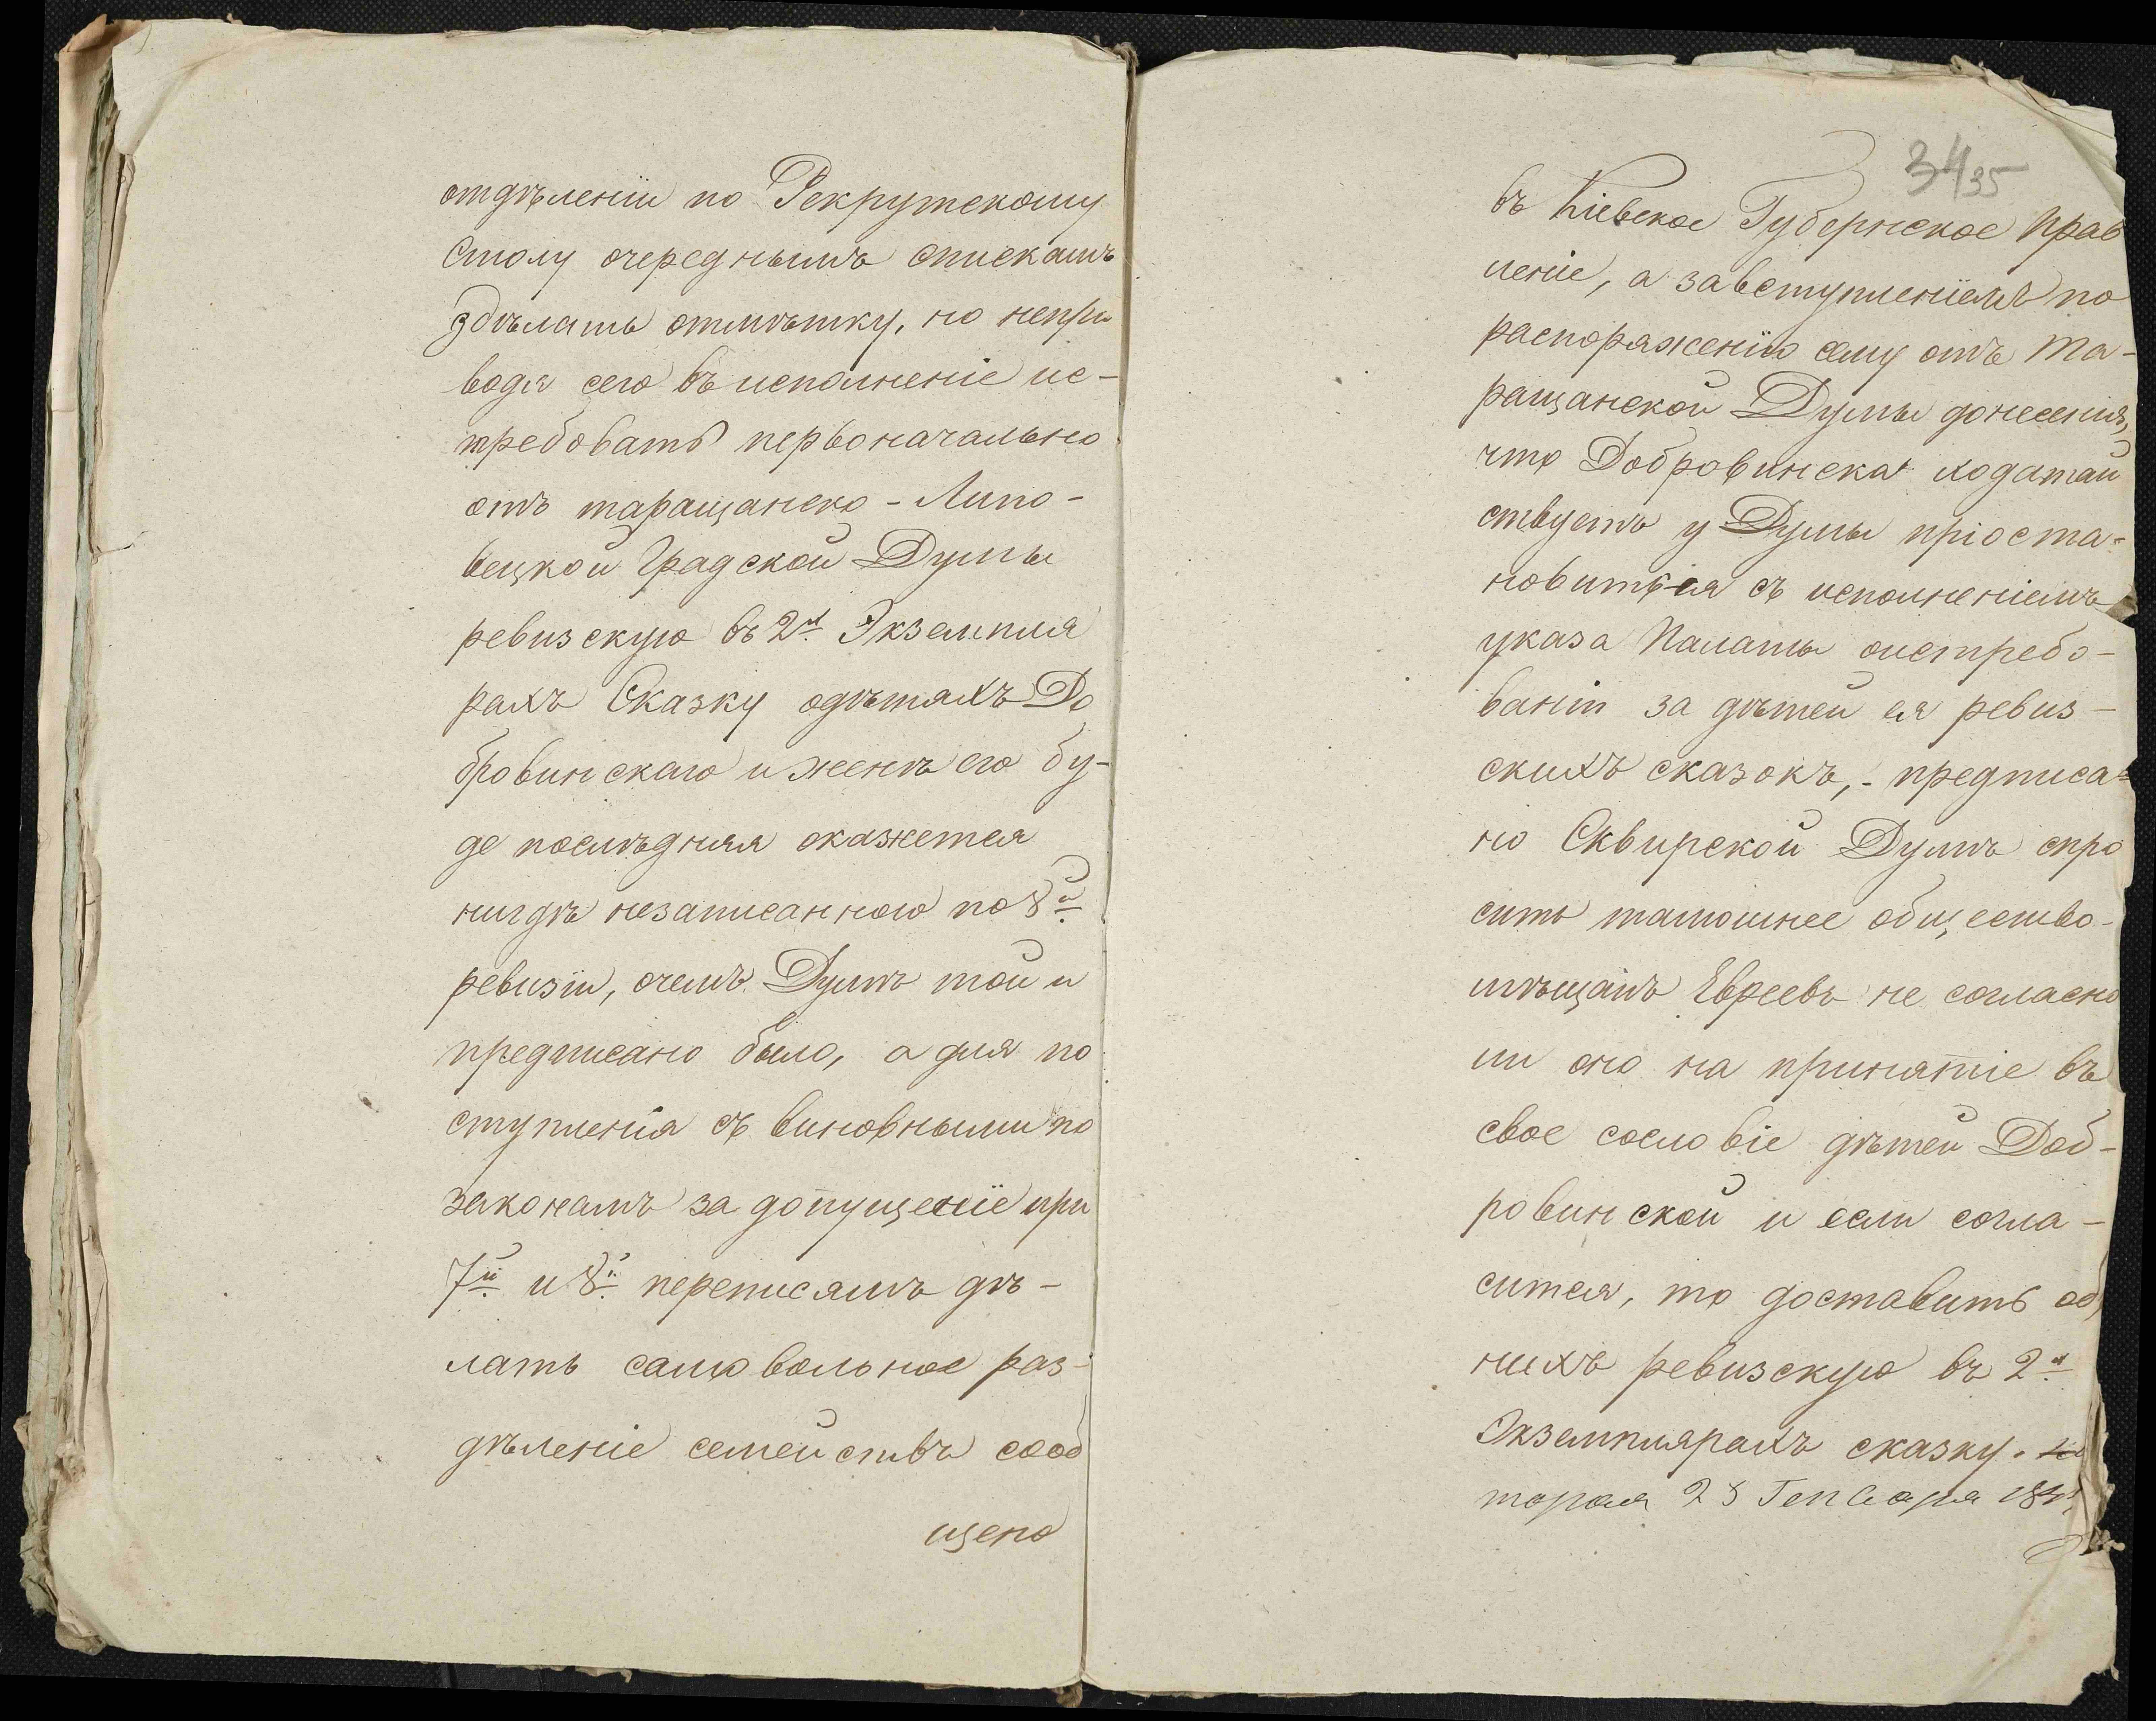 отдѣленіи по Рекрутскому
Столу очереднымъ спискамъ
здѣлать отмѣтку, но непри
водя сего въ исполненіе ис-
требовать первоначально
отъ таращанско-Липо-
вецкой Градской Думы
ревизскую въ 2хъ Экземпля
рахъ Сказку одѣтяхъ До
бровинскаго и женѣ его бу-
де послѣдняя окажется
нигдѣ незаписанною по 8й
ревизіи, очемъ Думѣ той и
предписано было, а для по
ступленія съ виновными по
законамъ за допущеніе при
7й и 8й переписямъ дѣ-
лать самовольное раз-
дѣленіе семействъ сооб
щено
34 35
въ Кіевское Губернское Прав
леніе, а завступленіемъ по
распоряженію сему отъ Та-
ращанской Думы донесенія,
что Добровинска ходатай
ствуетъ у Думы пріоста-
новиться съ исполненіемъ
указа Палаты оистребо-
ваніи за дѣтей ея ревиз-
скихъ сказокъ,- предписа-
но Сквирской Думѣ спро
сить тамошнее общество
мѣщанъ Евреевъ не согласно
ли оно на принятіе въ
свое сословіе дѣтей Доб-
ровинской и если согла-
сится, то доставить об
нихъ ревизскую въ 2хъ
Экземплярахъ сказку. ко
торая 28 Генваря